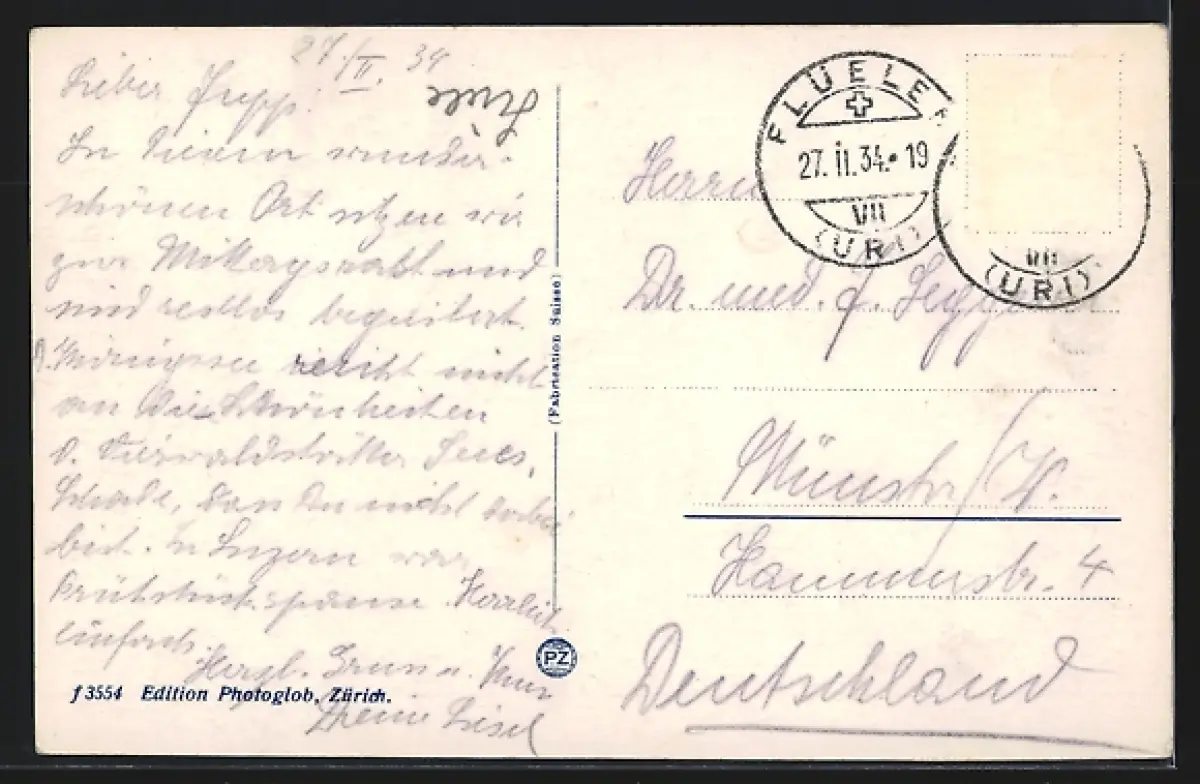 27./II. 34
Lieber Jupp!
In diesem wunder-
schönen Ort sitzen wir
zur Mittagsrast und
sind restlos begeistert.
D. Königssee reicht nicht
an die Schönheiten
d. Vierwaldstätter Sees.
Schade, dass Du nicht dabei
bist. In Luzern war
Frühstückspause. Herrlich
einfach.
Herzl. Gruss u. Kuss
Deine Liesel
f 3554 Edition Photoglob, Zürich.
(Fabrication Suisse)
PZ
FLÜELEN
27. II. 34. 19
VII
(URI)
VII
(URI)
Herrn
Dr. med. J.
Münster/W.
Hammerstr. 4
Deutschland